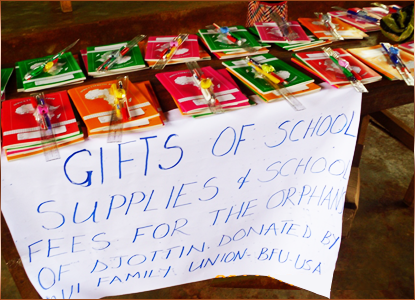 GIFTS OF SCHOOL
SUPPLIES & SCHOOL
FEES FOR THE ORPHANS
OF DJOTTIN. DONATED BY
FAMILY UNION-BFU-USA